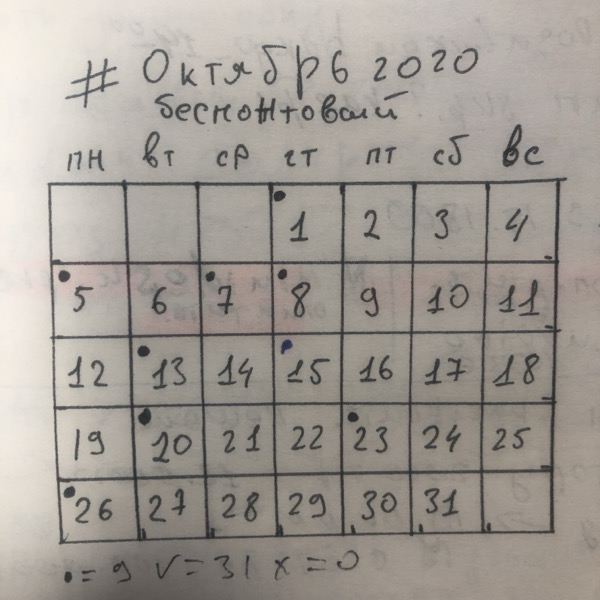 # Октябрь 2020
беспонтовый
пн вт ср чт пт сб вс
1 2 3 4
5 6 7 8 9 10 11
12 13 14 15 16 17 18
19 20 21 22 23 24 25
26 27 28 29 30 31
• = 9 V = 31 x = 0